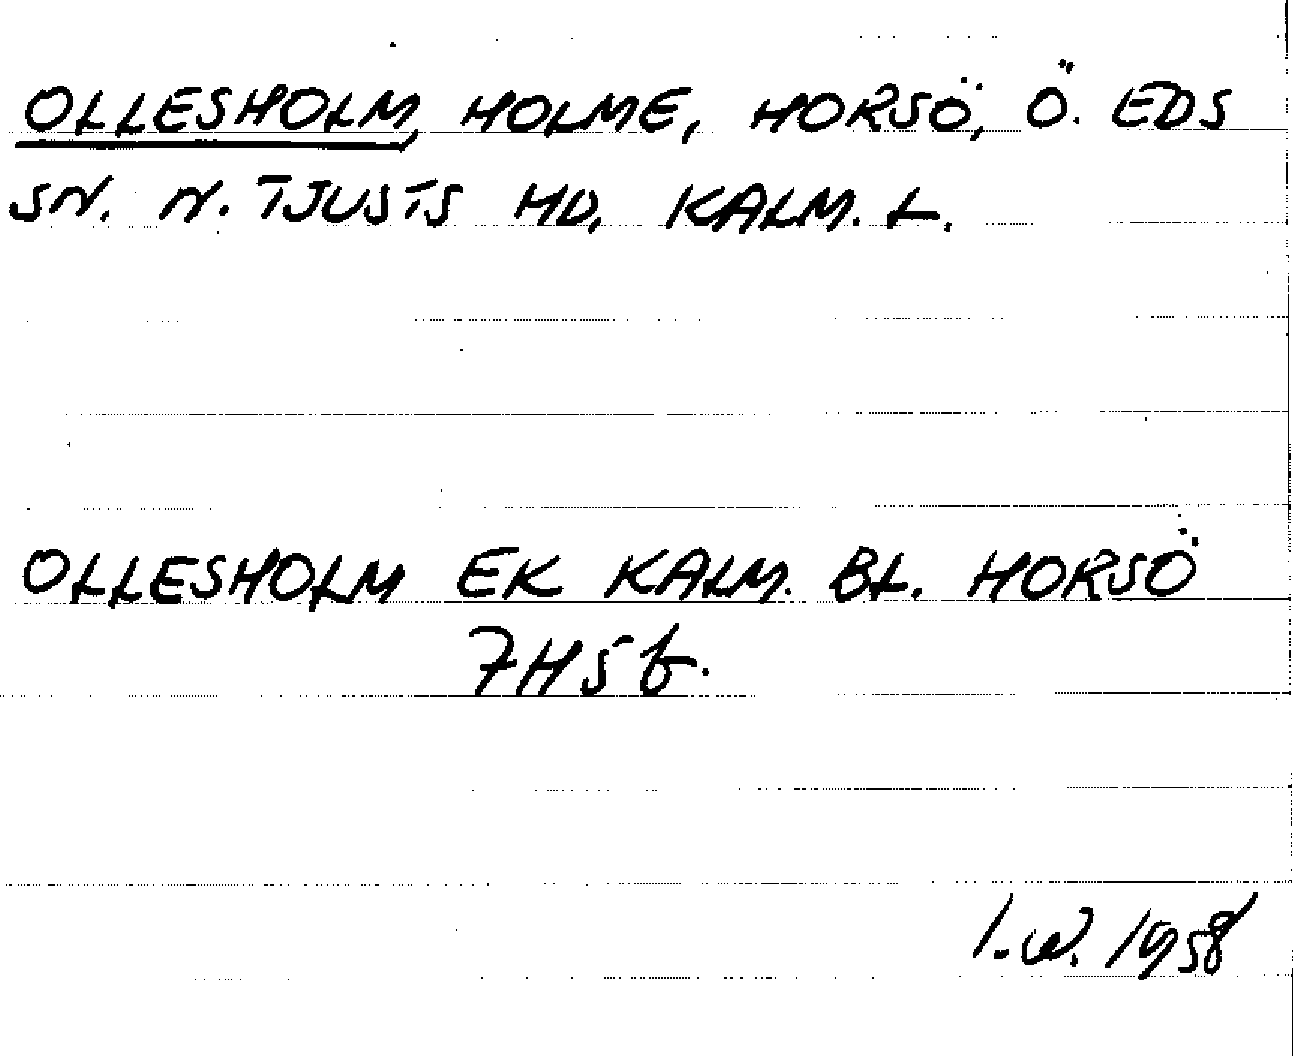 OLLESHOLM, HOLME, HORSÖ, Ö. EDS
SN. N. TJUSTS HD, KALM. L.
OLLESHOLM EK KALM. BL. HORSÖ
7H5f.
I.W. 1958